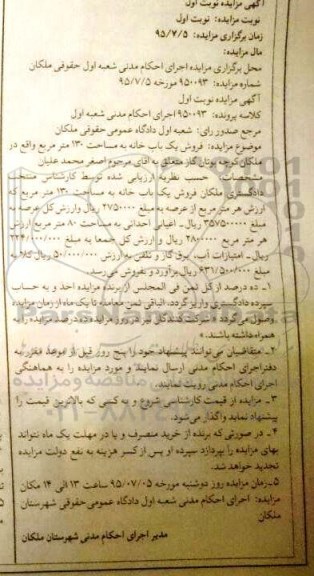 آگهی مزایده نوبت اول
نوبت مزایده: نوبت اول
زمان برگزاری مزایده: ۹۵/۷/۵
مال مزایده:
محل برگزاری مزایده اجرای احکام مدنی شعبه اول حقوقی ملکان
شماره مزایده: ۹۵۰۰۹۳ مورخه ۹۵/۷/۵
آگهی مزایده نوبت اول
کلاسه پرونده: ۹۵۰۰۹۳ اجرای احکام مدنی شعبه اول
مرجع صدور رای: شعبه اول دادگاه عمومی حقوقی ملکان
موضوع مزایده: فروش یک باب خانه به مساحت ۱۳۰ متر مربع واقع در
ملکان کوچه بوتان گاز متعلق به آقای مرحوم اصغر محمد علیان
مشخصات: حسب نظریه ارزیابی شده توسط کارشناس منتخب
دادگستری ملکان فروش یک باب خانه به مساحت ۱۳۰ متر مربع که
ارزش هر متر مربع از عرصه به مبلغ ۲۷۵۰۰۰۰ ریال وارزش کل عرصه به
مبلغ ۳۵۷۵۰۰۰۰۰ ریال. اعیانی احداثی به مساحت ۸۰ متر مربع ارزش
هر متر مربع ۲۸۰۰۰۰۰ ریال و ارزش کل جمعا به مبلغ ۲۲۴/۰۰۰/۰۰۰
ریال. امتیازات آب، برق گاز و تلفن به ارزش ۵۰/۰۰۰/۰۰۰ ریال کلا به
مبلغ ۶۳۱/۵۰۰/۰۰۰ ریال برآورد و بفروش می‌رسد.
۱- ده درصد از کل ثمن فی المجلس از برنده مزایده اخذ و به حساب
سپرده دادگستری واریز گردد، الباقی ثمن معامله تا یک ماه از زمان مزایده
وصول می‌گردد « شرکت کنندگان نیز در روز مزایده ده درصد مزایده را به
همراه داشته باشند.»
۲- متقاضیان می‌توانند پیشنهاد خود را پنج روز قبل از موعد مقرر به
دفتر اجرای احکام مدنی ارسال نمایند و مورد مزایده را به هماهنگی
اجرای احکام مدنی رویت نمایند.
۳- مزایده از قیمت کارشناسی شروع و به کسی که بالاترین قیمت را
پیشنهاد نماید واگذار می‌شود.
۴- در صورتی که برنده از خرید منصرف و یا در مهلت یک ماه نتواند
بهای مزایده را بپردازد سپرده او پس از کسر هزینه به نفع دولت مزایده
تجدید خواهد شد.
۵- زمان مزایده روز دوشنبه مورخه ۹۵/۰۷/۰۵ ساعت ۱۳ الی ۱۴ مکان
مزایده: اجرای احکام مدنی شعبه اول دادگاه عمومی حقوقی شهرستان
ملکان
مدیر اجرای احکام مدنی شهرستان ملکان